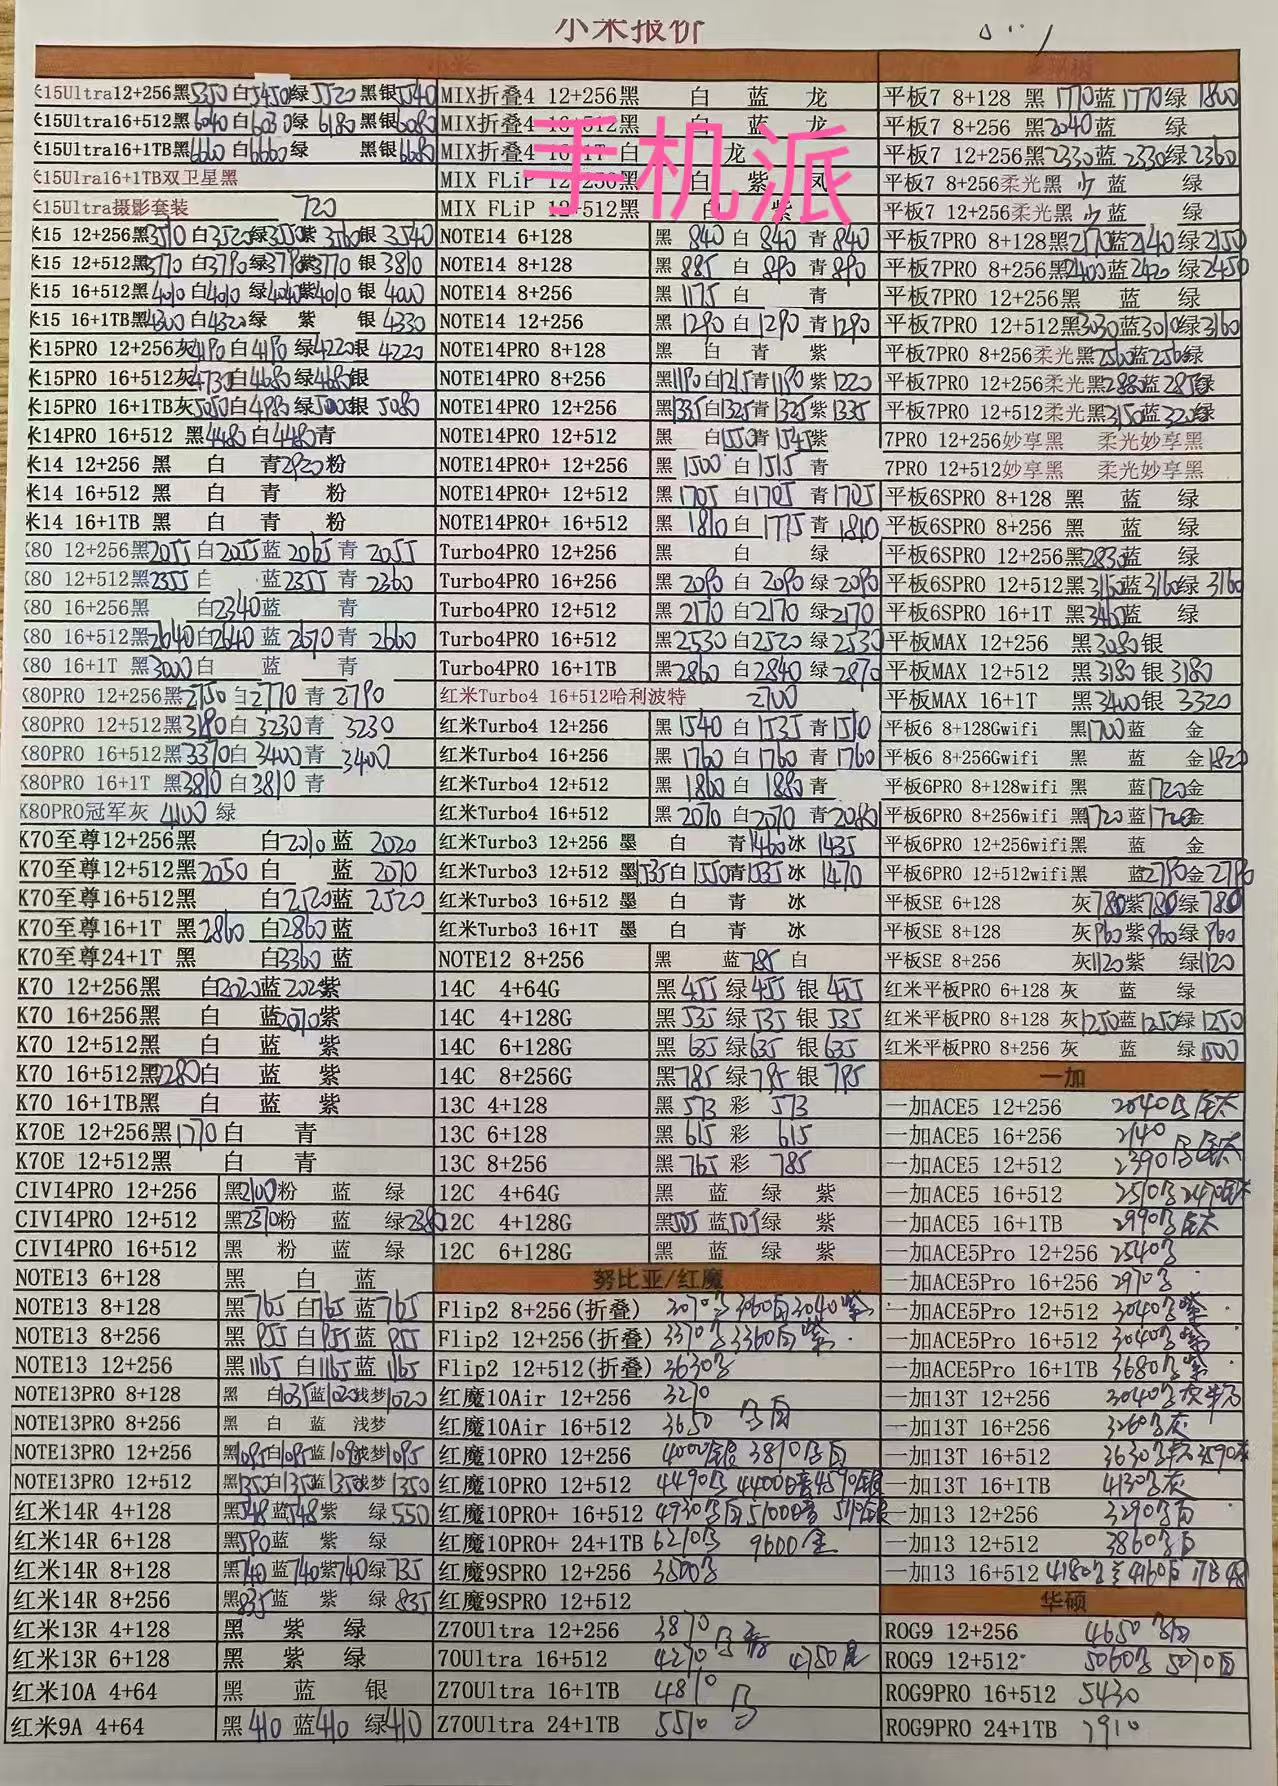 小米报价
手机派
米15Ultra12+256黑5350白5450绿5520黑银5540
米15Ultra16+512黑6040白6030绿6180黑银6080
米15Ultra16+1TB黑6660白6660绿 黑银6680
米15Ulra16+1TB双卫星黑
米15Ultra摄影套装 720
米15 12+256黑3510白3520绿3550紫3560银3540
米15 12+512黑3770白3790绿3790紫3770银3810
米15 16+512黑4010白4010绿4040紫4010银4000
米15 16+1TB黑4300白4320绿 紫 银4330
米15PRO 12+256灰4190白4190绿4220银4220
米15PRO 16+512灰4730白4680绿4680银
米15PRO 16+1TB灰5050白4980绿5000银5080
米14PRO 16+512 黑4480白4480青
米14 12+256 黑 白 青2920粉
米14 16+512 黑 白 青 粉
米14 16+1TB 黑 白 青 粉
K80 12+256黑2055白2055蓝2065青2055
K80 12+512黑2355白 蓝2355青2360
K80 16+256黑 白2340蓝 青
K80 16+512黑2640白2640蓝2670青2660
K80 16+1T 黑3000白 蓝 青
K80PRO 12+256黑2750白2770青2790
K80PRO 12+512黑3190白3230青3230
K80PRO 16+512黑3370白3400青3400
K80PRO 16+1T 黑3810白3810青
K80PRO冠军灰 4100 绿
K70至尊12+256黑 白2010蓝2020
K70至尊12+512黑2050白 蓝2070
K70至尊16+512黑 白2520蓝2520
K70至尊16+1T 黑2860白2860蓝
K70至尊24+1T 黑 白3360蓝
K70 12+256黑 白2020蓝2025紫
K70 16+256黑 白 蓝2070紫
K70 12+512黑 白 蓝 紫
K70 16+512黑2280白 蓝 紫
K70 16+1TB黑 白 蓝 紫
K70E 12+256黑1770白 青
K70E 12+512黑 白 青
CIVI4PRO 12+256 黑2100粉 蓝 绿
CIVI4PRO 12+512 黑2370粉 蓝 绿2380
CIVI4PRO 16+512 黑 粉 蓝 绿
NOTE13 6+128 黑 白 蓝
NOTE13 8+128 黑765白765蓝765
NOTE13 8+256 黑955白955蓝955
NOTE13 12+256 黑1165白1165蓝1165
NOTE13PRO 8+128 黑 白1035蓝1020浅梦1020
NOTE13PRO 8+256 黑 白 蓝 浅梦
NOTE13PRO 12+256 黑1095白1095蓝1095浅梦1095
NOTE13PRO 12+512 黑1350白1350蓝1350浅梦1350
红米14R 4+128 黑548蓝548紫 绿550
红米14R 6+128 黑590蓝 紫 绿
红米14R 8+128 黑740蓝740紫740绿735
红米14R 8+256 黑835蓝 紫 绿835
红米13R 4+128 黑 紫 绿
红米13R 6+128 黑 紫 绿
红米10A 4+64 黑 蓝 银
红米9A 4+64 黑410蓝410绿410
MIX折叠4 12+256黑 白 蓝 龙
MIX折叠4 16+512黑 白 蓝 龙
MIX折叠4 16+1T 白 龙
MIX FLiP 12+256黑 白 紫 凤
MIX FLiP 12+512黑 白 紫
NOTE14 6+128 黑840白840青840
NOTE14 8+128 黑885白890青890
NOTE14 8+256 黑1175白 青
NOTE14 12+256 黑1290白1290青1290
NOTE14PRO 8+128 黑 白 青 紫
NOTE14PRO 8+256 黑1190白1215青1190紫1220
NOTE14PRO 12+256 黑1335白1325青1325紫1335
NOTE14PRO 12+512 黑 白1550青1545紫
NOTE14PRO+ 12+256 黑1500白1515青
NOTE14PRO+ 12+512 黑1705白1705青1705
NOTE14PRO+ 16+512 黑1810白1775青1810
Turbo4PRO 12+256 黑 白 绿
Turbo4PRO 16+256 黑2090白2090绿2090
Turbo4PRO 12+512 黑2170白2170绿2170
Turbo4PRO 16+512 黑2530白2520绿2530
Turbo4PRO 16+1TB 黑2860白2840绿2870
红米Turbo4 16+512哈利波特 2700
红米Turbo4 12+256 黑1540白1535青1510
红米Turbo4 16+256 黑1760白1760青1760
红米Turbo4 12+512 黑1860白1880青
红米Turbo4 16+512 黑2070白2070青2080
红米Turbo3 12+256 墨 白 青1460冰1435
红米Turbo3 12+512 墨1535白1550青1535冰1470
红米Turbo3 16+512 墨 白 青 冰
红米Turbo3 16+1T 墨 白 青 冰
NOTE12 8+256 黑 蓝785白
14C 4+64G 黑455绿455银455
14C 4+128G 黑535绿535银535
14C 6+128G 黑635绿635银635
14C 8+256G 黑785绿785银785
13C 4+128 黑573彩573
13C 6+128 黑615彩615
13C 8+256 黑765彩785
12C 4+64G 黑 蓝 绿 紫
12C 4+128G 黑505蓝505绿 紫
12C 6+128G 黑 蓝 绿 紫
努比亚/红魔
Flip2 8+256(折叠) 3070黑3060白3040紫
Flip2 12+256(折叠) 3370黑3360白紫
Flip2 12+512(折叠) 3630黑
红魔10Air 12+256 3270
红魔10Air 16+512 3650 黑白
红魔10PRO 12+256 4000银3810黑白
红魔10PRO 12+512 4490黑4400暗4590银
红魔10PRO+ 16+512 4930黑白5100暗
红魔10PRO+ 24+1TB 6210黑 9600金
红魔9SPRO 12+256 3500黑
红魔9SPRO 12+512
Z70Ultra 12+256 3870
70Ultra 16+512 4270 黑 4750
Z70Ultra 16+1TB 4810 黑
Z70Ultra 24+1TB 5510
平板7 8+128 黑1770蓝1770绿1800
平板7 8+256 黑2040蓝 绿
平板7 12+256黑2330蓝2330绿2360
平板7 8+256柔光黑 少 蓝 绿
平板7 12+256柔光黑 少 蓝 绿
平板7PRO 8+128黑2170蓝2140绿2150
平板7PRO 8+256黑2400蓝2420绿2450
平板7PRO 12+256黑 蓝 绿
平板7PRO 12+512黑3030蓝3010绿3160
平板7PRO 8+256柔光黑2560蓝2560绿
平板7PRO 12+256柔光黑2880蓝2850绿
平板7PRO 12+512柔光黑3150蓝3220绿
7PRO 12+256妙享黑 柔光妙享黑
7PRO 12+512妙享黑 柔光妙享黑
平板6SPRO 8+128 黑 蓝 绿
平板6SPRO 8+256 黑 蓝 绿
平板6SPRO 12+256黑2830蓝 绿
平板6SPRO 12+512黑3150蓝3160绿3160
平板6SPRO 16+1T 黑3460蓝 绿
平板MAX 12+256 黑3080银
平板MAX 12+512 黑3180银3180
平板MAX 16+1T 黑3400银3320
平板6 8+128Gwifi 黑1700蓝 金
平板6 8+256Gwifi 黑 蓝 金1820
平板6PRO 8+128wifi 黑 蓝1720金
平板6PRO 8+256wifi 黑1720蓝1720金
平板6PRO 12+256wifi黑 蓝 金
平板6PRO 12+512wifi黑 蓝2790金2790
平板SE 6+128 灰780紫780绿780
平板SE 8+128 灰960紫960绿960
平板SE 8+256 灰1120紫 绿1120
红米平板PRO 6+128 灰 蓝 绿
红米平板PRO 8+128 灰1250蓝1250绿1250
红米平板PRO 8+256 灰 蓝 绿1500
一加
一加ACE5 12+256 2040黑钛
一加ACE5 16+256 2140
一加ACE5 12+512 2390黑钛
一加ACE5 16+512 2510黑2470钛
一加ACE5 16+1TB 2990黑钛
一加ACE5Pro 12+256 2540黑
一加ACE5Pro 16+256 2970黑
一加ACE5Pro 12+512 3040黑紫
一加ACE5Pro 16+512 3040黑紫
一加ACE5Pro 16+1TB 3680黑紫
一加13T 12+256 3040黑灰粉
一加13T 16+256 3260黑灰
一加13T 16+512 3630黑灰3590粉
一加13T 16+1TB 4130黑灰
一加13 12+256 3290黑白
一加13 12+512 3860黑白
一加13 16+512 4180黑兰4160白 1TB
华硕
ROG9 12+256 4650黑白
ROG9 12+512 5060黑 5070白
ROG9PRO 16+512 5430
ROG9PRO 24+1TB 7910